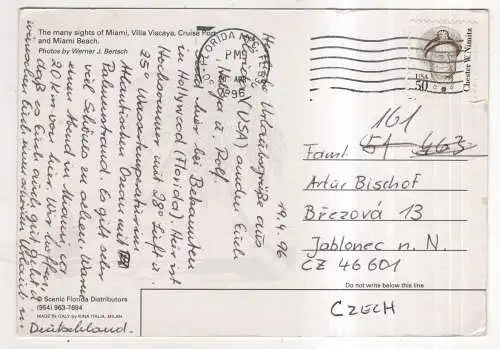 The many sights of Miami, Villa Viscaya, Cruise Port
and Miami Beach.
Photos by Werner J. Bertsch
19.4.96
Herzliche Urlaubsgrüße aus
Florida (USA) senden Euch
und Rolf.
Sind hier bei Bekannten
in Hollywood (Florida). Hier ist
Hochsommer mit 28° Luft u.
25° Wassertemperatur im
Atlantischen Ozean mit
Palmenstrand. Es gibt sehr
viel Schönes zu sehen. Waren
einen Strand in Miami, ca
20 km von hier. Wir hoffen,
daß es Euch auch gut geht u.
wünschen Euch einen schönen Urlaub in
Deutschland.
Scenic Florida Distributors
(954) 963-7694
MADE IN ITALY by KINA ITALIA, MILAN
FLORIDA
PM
1996
USA
50
Chester W. Nimitz
161
Famil.
Artur Bischof
Březová 13
Jablonec n. N.
CZ 46601
Do not write below this line
CZECH